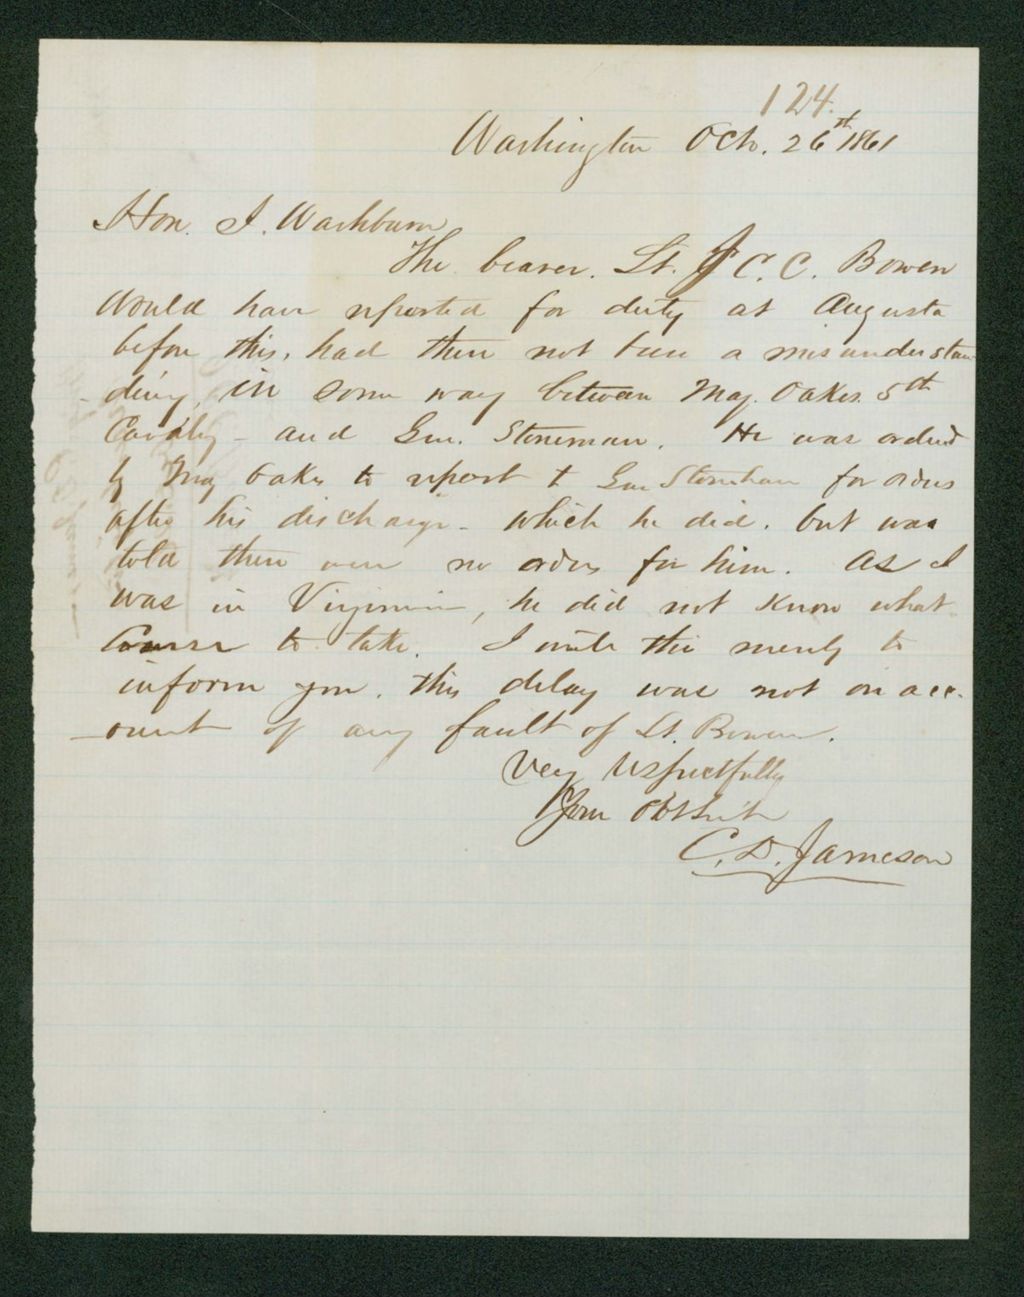 124.
Washington Oct. 26th 1861
Hon. I. Washburn
The bearer. Lt. J C. C. Bowen
would have reported for duty at Augusta
before this, had there not been a misunderstan
-ding, in some way between Maj. Oakes 5th
Cavalry - and Gen. Stoneman. He was ordered
by Maj Oakes to report to Gen Stoneman for orders
after his discharge - which he did. but was
told there were no orders for him. As I
was in Virginia, he did not know what
course to take. I write this merely to
inform you. this delay was not on acc-
-ount of any fault of Lt. Bowen.
Very respectfully
Your Obt Servt
C. D. Jameson